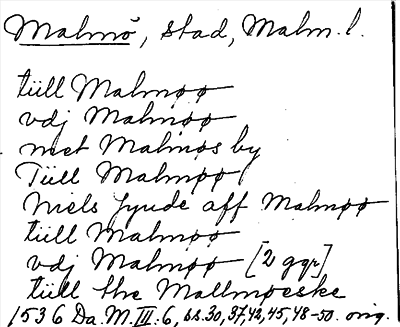 Malmö, stad, Malm. l.
tüll Malmøø
vdj Malmøø
met Malmøs by
Tüll Malmøø
Niels fynde aff Malmøø
tüll Malmøø
vdj Malmøø [2 ggr]
tüll the Mallmøeske
1536 Da. M. III: 6, bl. 30, 37, 42, 45, 48-50. orig.